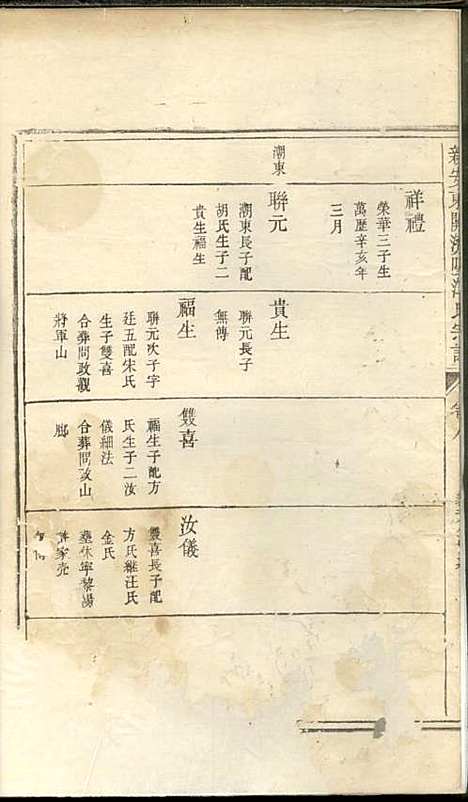 祥禮
榮華三子生
萬歷辛亥年
三月
潮東
聯元
潮東長子配
胡氏生子二
貴生福生
貴生
聯元長子
無傳
福生
聯元次子字
廷五配朱氏
生子雙喜
合葬問政觀
將軍山
雙喜
福生子配方
氏生子二汝
儀細法
合葬問政山
汝儀
雙喜長子配
方氏繼汪氏
金氏
墓休寧黎陽
家売